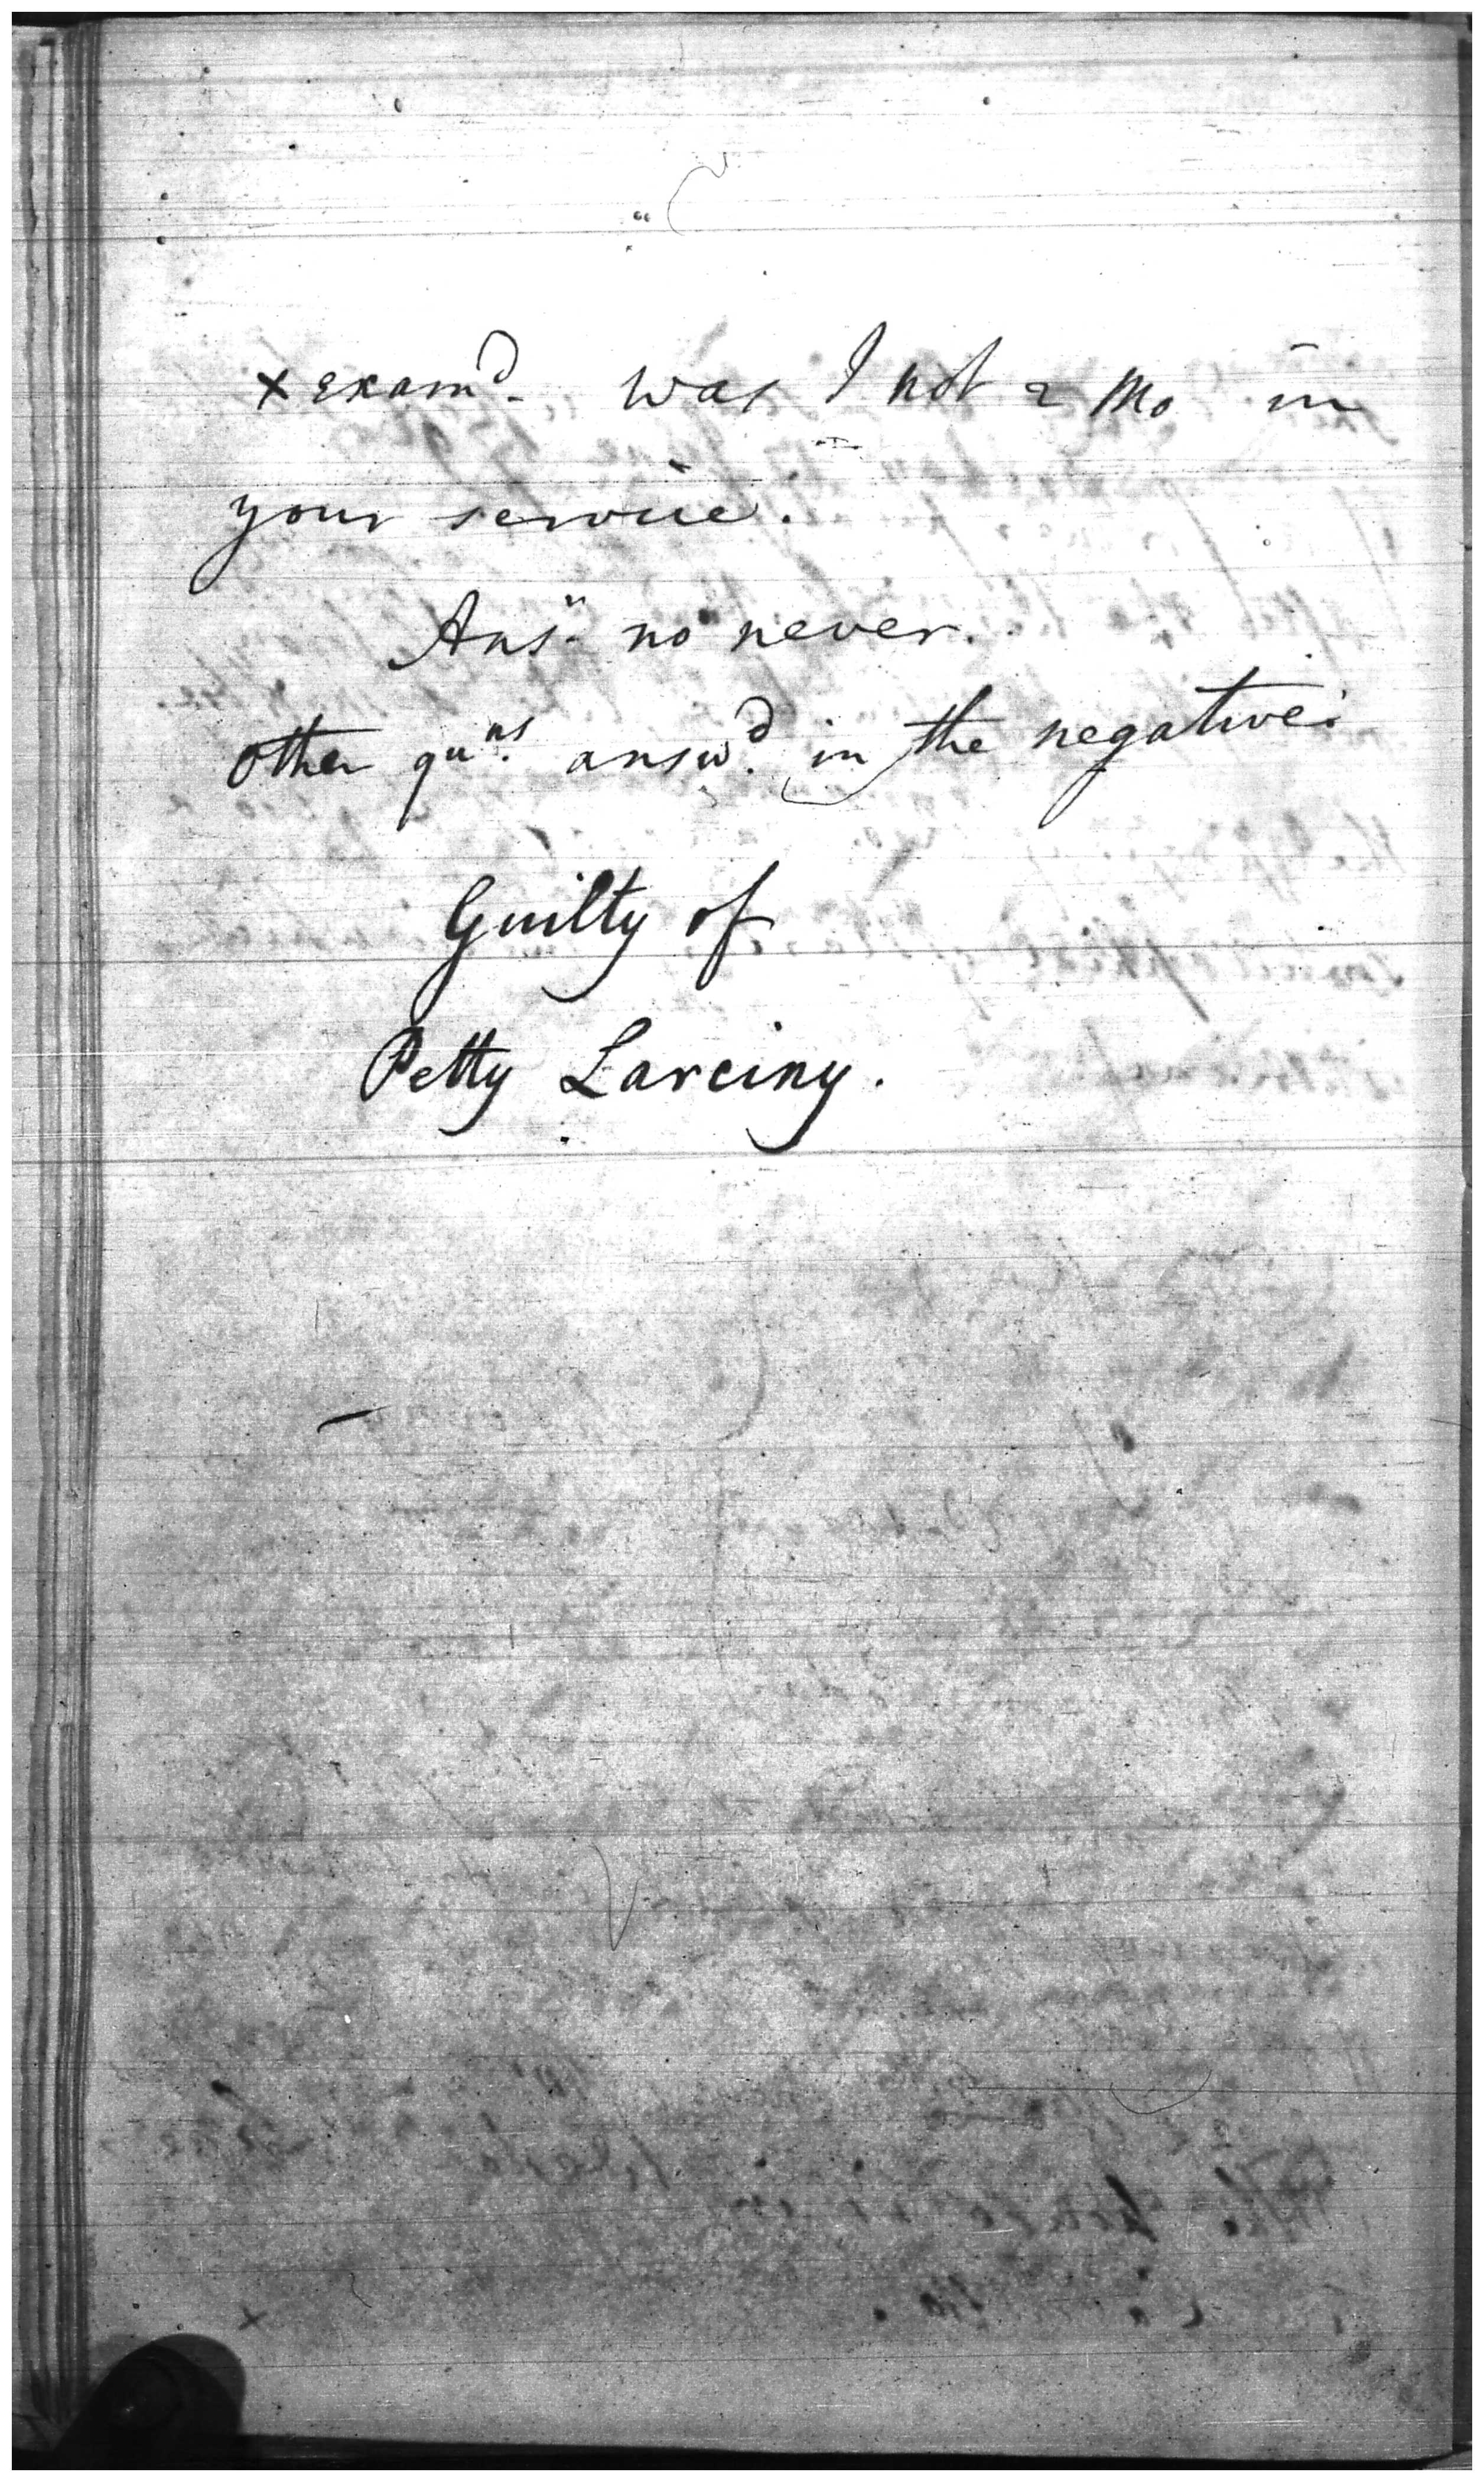 x examd. was I not 2 Mo in
your service.
Ansr. no never.
other quns. answd. in the negative.
Guilty of
Petty Larciny.